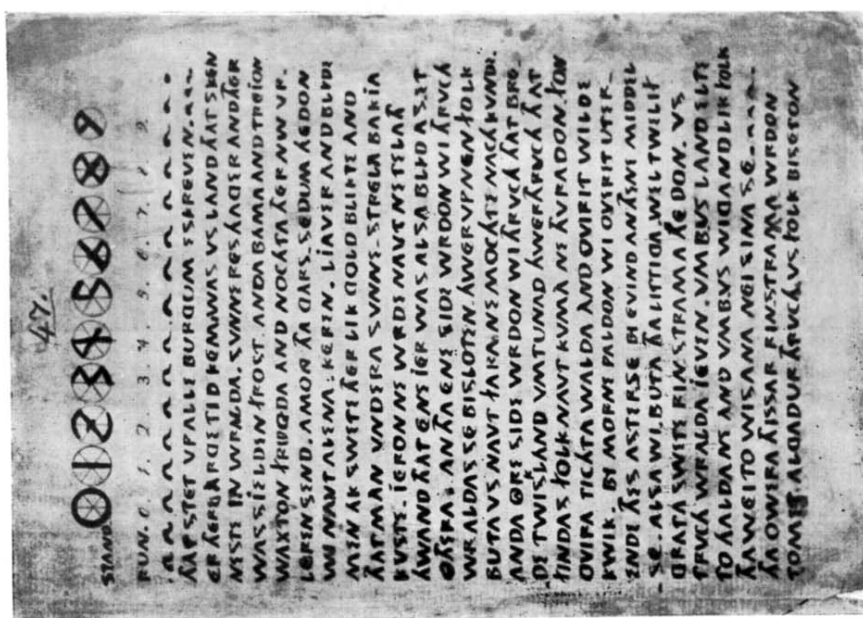 47.
STAND. 0 1 2 3 4 5 6 7 8 9
RUN. 0. 1. 2. 3. 4. 5. 6. 7. 8. 9.
ÞÅT STET VPALLE BURGUM ESKREVEN.
ER ÞERE ÅRGE TID KEM WAS VS LAND ÞÅT SKEN
NESTE IN WRALDA. SVNNE RES HAGER AND ÞER
WAS SIELDEN FROST. ANDA BAMA AND TREION
WAXTON FRUGDA AND NOCHTA ÞER NW VR.
LEREN SEND. AMONG ÞA GÅRS.SEDUM HEDON
WI NAVT ALENA. KEREN. LIAVER AND BLIDE
MEN AK SWETE ÞER LIK GOLD BLIKTE AND
ÞÅT MÅN VNDERA SVNNE.STRELA BAKIA
KVSTE. IERON NE WRDE NAVT NE TELAÞ
HWAND ÞÅT ENE IER WAS ALSA BLID AS ET
OÞERA. AN ÞA ENE SIDE WRDON WI ÞRVCH
WRALDAS SE BISLOTEN. HWERVP NEN FOLK
BUTA VS NAVT FARA NE MOCHTE NACH KVNDE.
ANDA ORE SIDE WRDON WI ÞRVCH ÞÅT BRE.
DE TWISKLAND VMTUNAD HWER ÞRVCH ÞÅT
FINDAS FOLK NAVT KVMA NE ÞVRADON. FON
OVIRA TICHTA WALDA AND OVIR IT WILDE
KWIK. BI MORNE PALDON WI OVIR IT UTER.
ENDE ÞES ASTERSE BI EVIND AN ÞENE MIDDEL
.SE. ALSA WI BUTA ÞA LITTIGA WEL TWILIF
GRATA SWETE RINSTRAMA HEDON. VS
ÞRVCH WRALDA IEVEN. VMB VS LAND ELTE
TO HALDANE AND VMB VS WIGANDLIK FOLK
ÞA WEI TO WISANA NEI SINA SE.
ÞA OWERA ÞISSAR RINSTRAMA WRDON
TOMET ALGADUR ÞRVCH VS FOLK BISETON